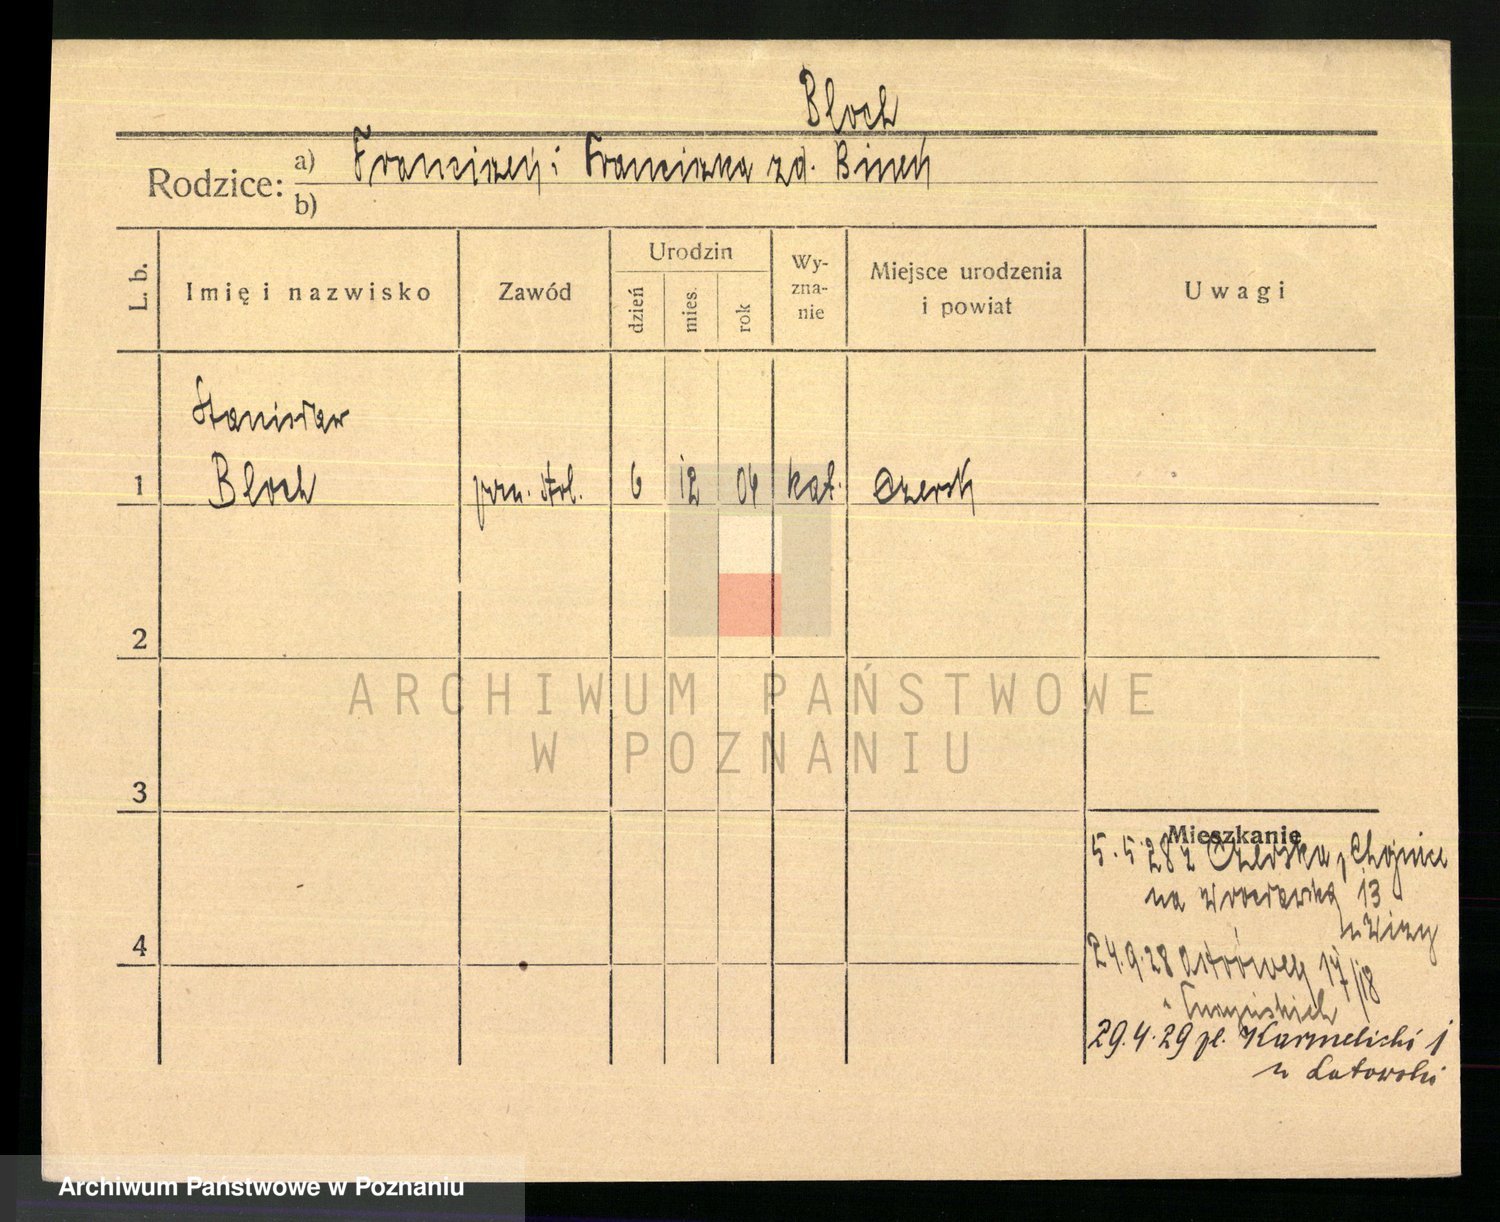 Bloch
Rodzice: a) Franciszek i Franciszka zd. Binek
b)
L. b.
Imię i nazwisko
Zawód
Urodzin
dzień
mies.
rok
Wy-
zna-
nie
Miejsce urodzenia
i powiat
Uwagi
Stanisław
1 Bloch pom. stol. 6 12 04 kat. Czersk
2
ARCHIWUM PAŃSTWOWE
W POZNANIU
3
Mieszkanie
5.5.28 z Czerska, Chojnice
na Wrocławską 13
u
4
24.9.28 Ostrówek 17/18
29.4.29 pl. Karmelicki 1
u Latowski
Archiwum Państwowe w Poznaniu